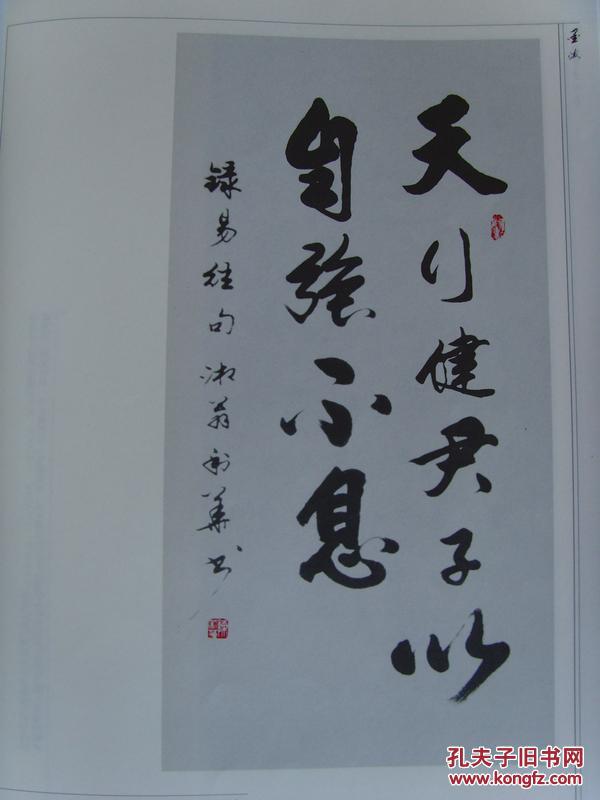 天行健君子以
自强不息
録易经句湘翁利华书
孔夫子旧书网
www.kongfz.com